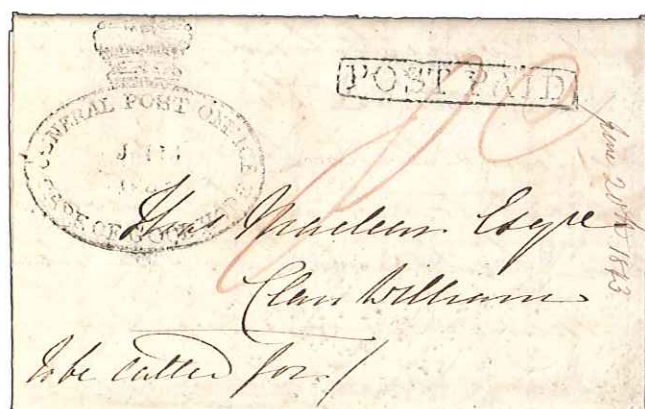 GENERAL POST OFFICE
CAPE OF GOOD HOPE
POST PAID
June 20th 1823
Esqre
Clan William
To be called for /